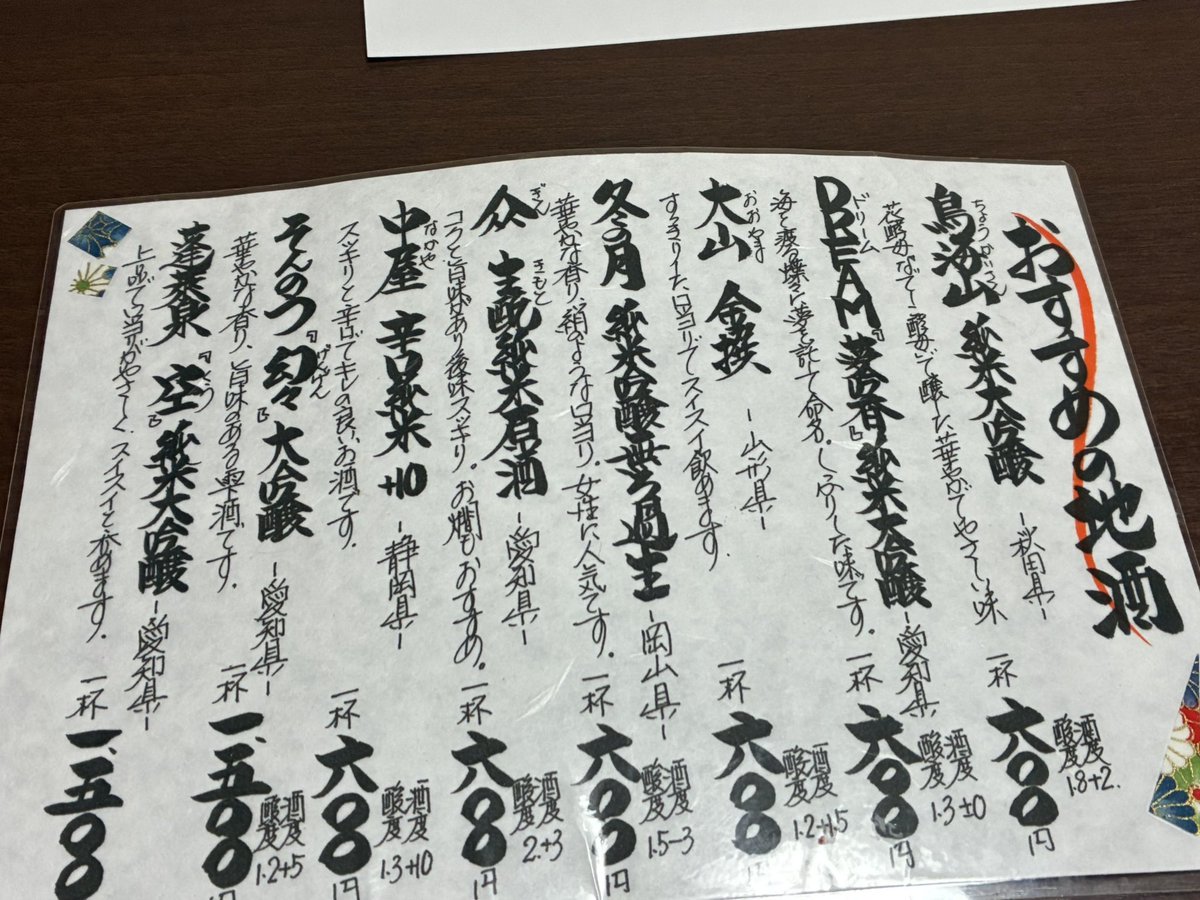 おすすめの地酒
ちょうかいさん
鳥海山 純米大吟醸 -秋田県-
花酵母なでしこ酵母で醸した華やかでやさしい味
一杯 六〇〇円
酒度 +2.
酸度 1.8
ドリーム
DREAM『夢吟香』純米大吟醸 -愛知県-
海を渡る蝶々に夢を託して命名。しふりした味です。
一杯 六〇〇円
酒度 ±0
酸度 1.3
おおやま
大山 金撰 -山形県-
すっきりした口当りでスイスイ飲めます。
一杯 六〇〇円
酒度
酸度 1.2
冬の月 純米吟醸無ろ過生 -岡山県-
華やかな香り、絹のような口当り。女性に人気です。
一杯 六〇〇円
酒度 -3
酸度 1.5
ぎん きもと
生酛純米原酒 -愛知県-
コクと旨味があり後味スッキリ。お燗もおすすめ。
一杯 六〇〇円
酒度 +3
酸度 2.
なかや
中屋 辛口純米 +10 -静岡県-
スッキリと辛口でキレの良いお酒です。
一杯 六〇〇円
酒度 +10
酸度 1.3
げんげん
そんのう『幻々』大吟醸 -愛知県-
華やかな香り、旨味のある雫酒です。
一杯 一、五〇〇円
酒度 +5
酸度 1.2
くう
蓬莱泉『空』純米大吟醸 -愛知県-
上品で口当りがやさしく、スイスイと呑めます。
一杯 一、五〇〇